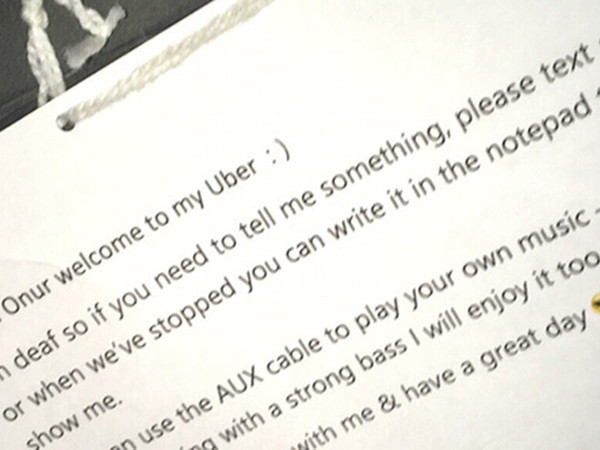 Onur welcome to my Uber :)
deaf so if you need to tell me something, please text
or when we've stopped you can write it in the notepad
show me.
use the AUX cable to play your own music -
with a strong bass I will enjoy it too
with me & have a great day